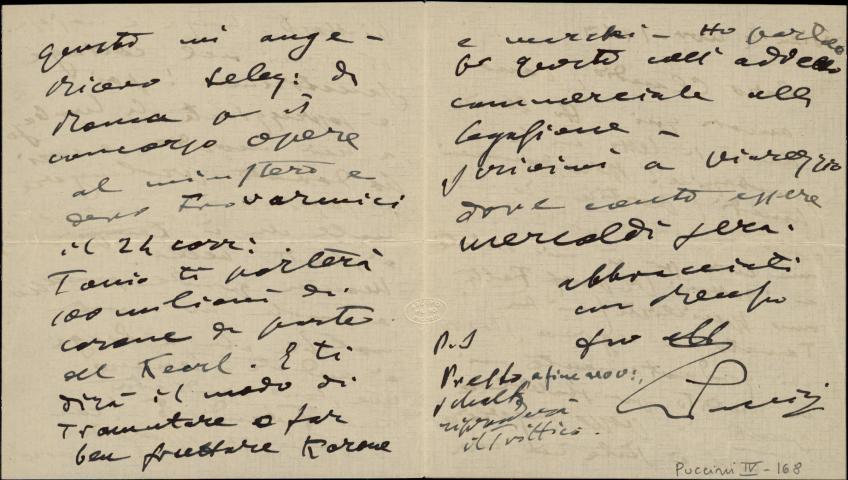 questo mi ange -
Ricevo teleg: di
Roma per il
concorso opere
al ministero e
devo trovarmici
il 24 corr:
Tonio ti porterà
100 milioni di
corone da parte
del Karl. E ti
dirà il modo di
tramutare o far
ben fruttare Korone
e marchi - Ho parlato
per questo coll'addetto
commerciale alla
Legazione -
scrivimi a Viareggio
dove conto essere
mercoldì sera.
abbracciati
con
tuo aff
Puccini
P.S
Presto, a fine nov:,
Schalk
riprenderà
il Trittico.
Puccini IV - 168